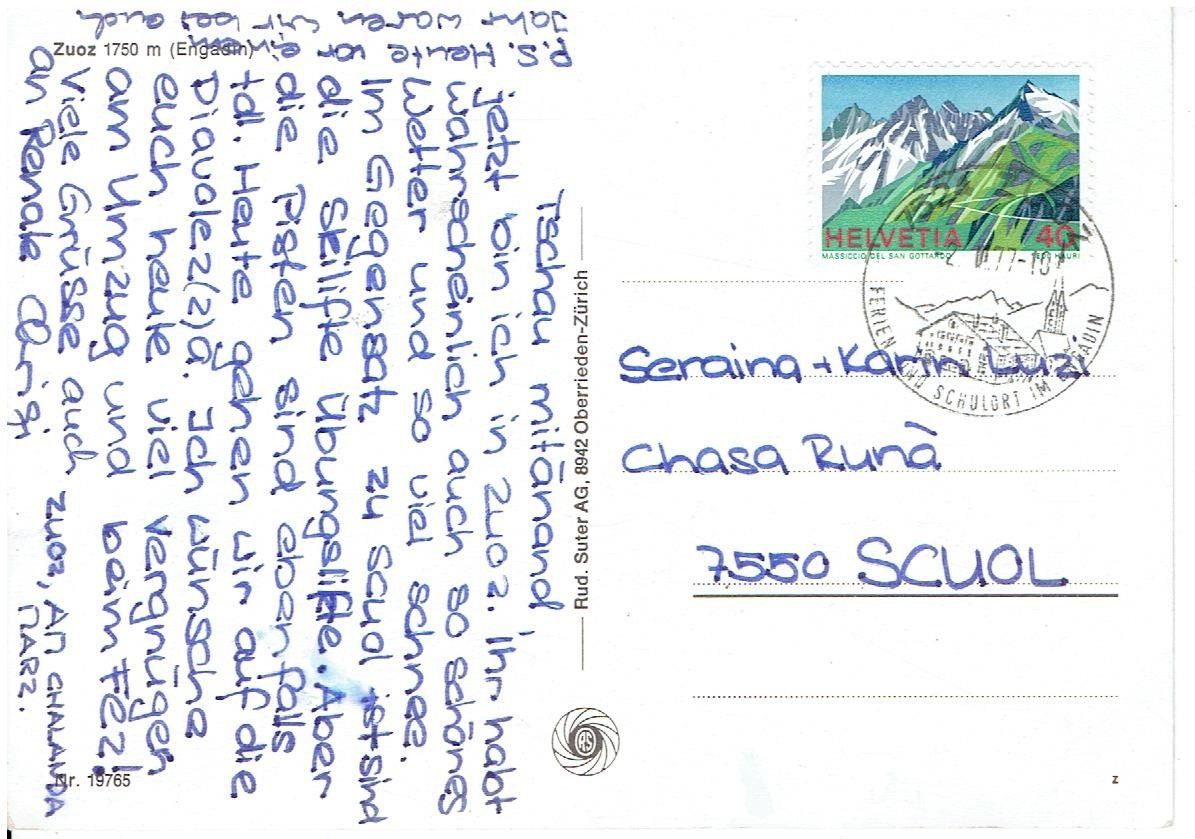 Zuoz 1750 m (Engadin)
Tschau mitänand
jetzt bin ich in Zuoz. Ihr habt
wahrscheinlich auch so schönes
Wetter und so viel schnee.
Im Gegensatz zu Scuol ist sind
die Skilifte Übungslifte. Aber
die Pisten sind ebenfalls
tdl. Heute gehen wir auf die
Diavolez(z)a. Ich wünsche
euch heute viel Vergnügen
am Umzug und beim Fez!
Viele Grüsse auch
an Renate
ZUOZ, AM CHALANDA
MARZ.
P.S. Heute vor einem
Jahr waren wir bei euch.
Nr. 19765
Rud. Suter AG, 8942 Oberrieden-Zürich
RS
HELVETIA 40
MASSICCIO DEL SAN GOTTARDO
FERIEN UND SCHULORT IM ENGADIN
Seraina + Karin Luzi
Chasa Runà
7550 SCUOL
z